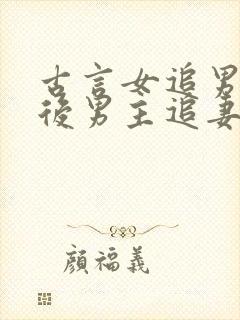 古言女追男
後男主追妻
顏福義